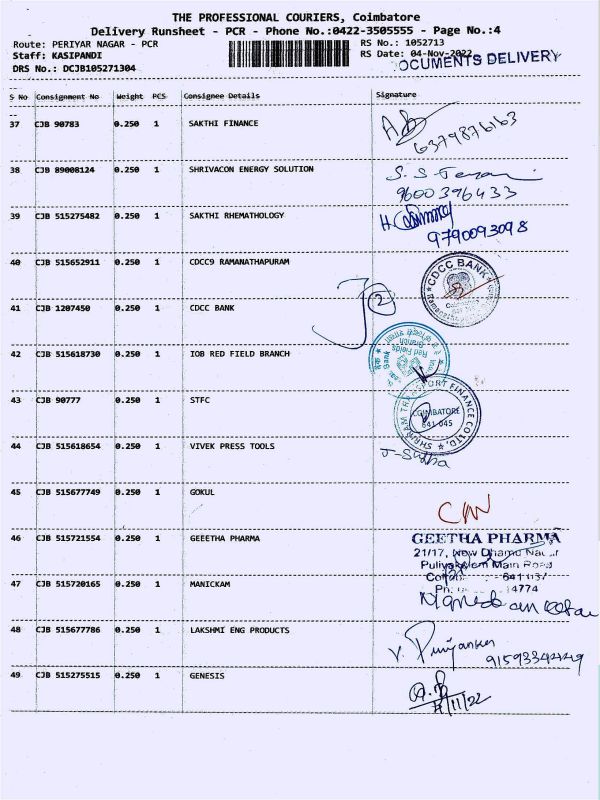 THE PROFESSIONAL COURIERS, Coimbatore
Delivery Runsheet - PCR - Phone No.:0422-3505555 - Page No.:4
Route: PERIYAR NAGAR - PCR
RS No.: 1052713
Staff: KASIPANDI
RS Date: 04-Nov-2022
OCUMENTS DELIVERY
DRS No.: DCJB105271304
S No Consignment No Weight PCS Consignee Details Signature
37 CJB 90783 0.250 1 SAKTHI FINANCE
6379876163
38 CJB 89008124 0.250 1 SHRIVACON ENERGY SOLUTION
9600396433
39 CJB 515275482 0.250 1 SAKTHI RHEMATHOLOGY
9790093098
40 CJB 515652911 0.250 1 CDCC9 RAMANATHAPURAM
CDCC BANK
41 CJB 1207450 0.250 1 CDCC BANK
2
42 CJB 515618730 0.250 1 IOB RED FIELD BRANCH
Red Fields
Branch
43 CJB 90777 0.250 1 STFC
SHRIRAM TRANSPORT FINANCE CO LTD,
COIMBATORE
641 045
44 CJB 515618654 0.250 1 VIVEK PRESS TOOLS
J-Sudha
45 CJB 515677749 0.250 1 GOKUL
46 CJB 515721554 0.250 1 GEEETHA PHARMA
GEETHA PHARMA
21/17, New Dhamu Nagar
Puliyakulam Main Road
641 037
4774
47 CJB 515720165 0.250 1 MANICKAM
48 CJB 515677786 0.250 1 LAKSHMI ENG PRODUCTS
V. Priyanka
49 CJB 515275515 0.250 1 GENESIS